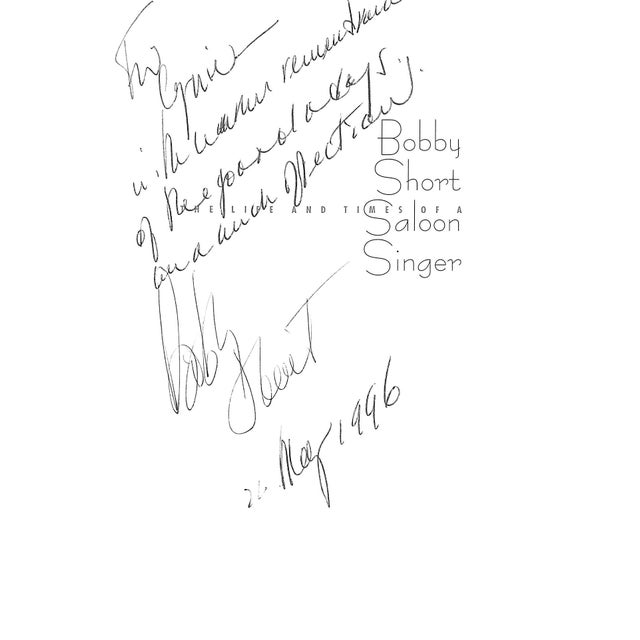 For
with warm remembrance
of the good old days
and much affection
Bobby
Short
THE LIFE AND TIMES OF A
Saloon
Singer
Bobby Short
May 1996